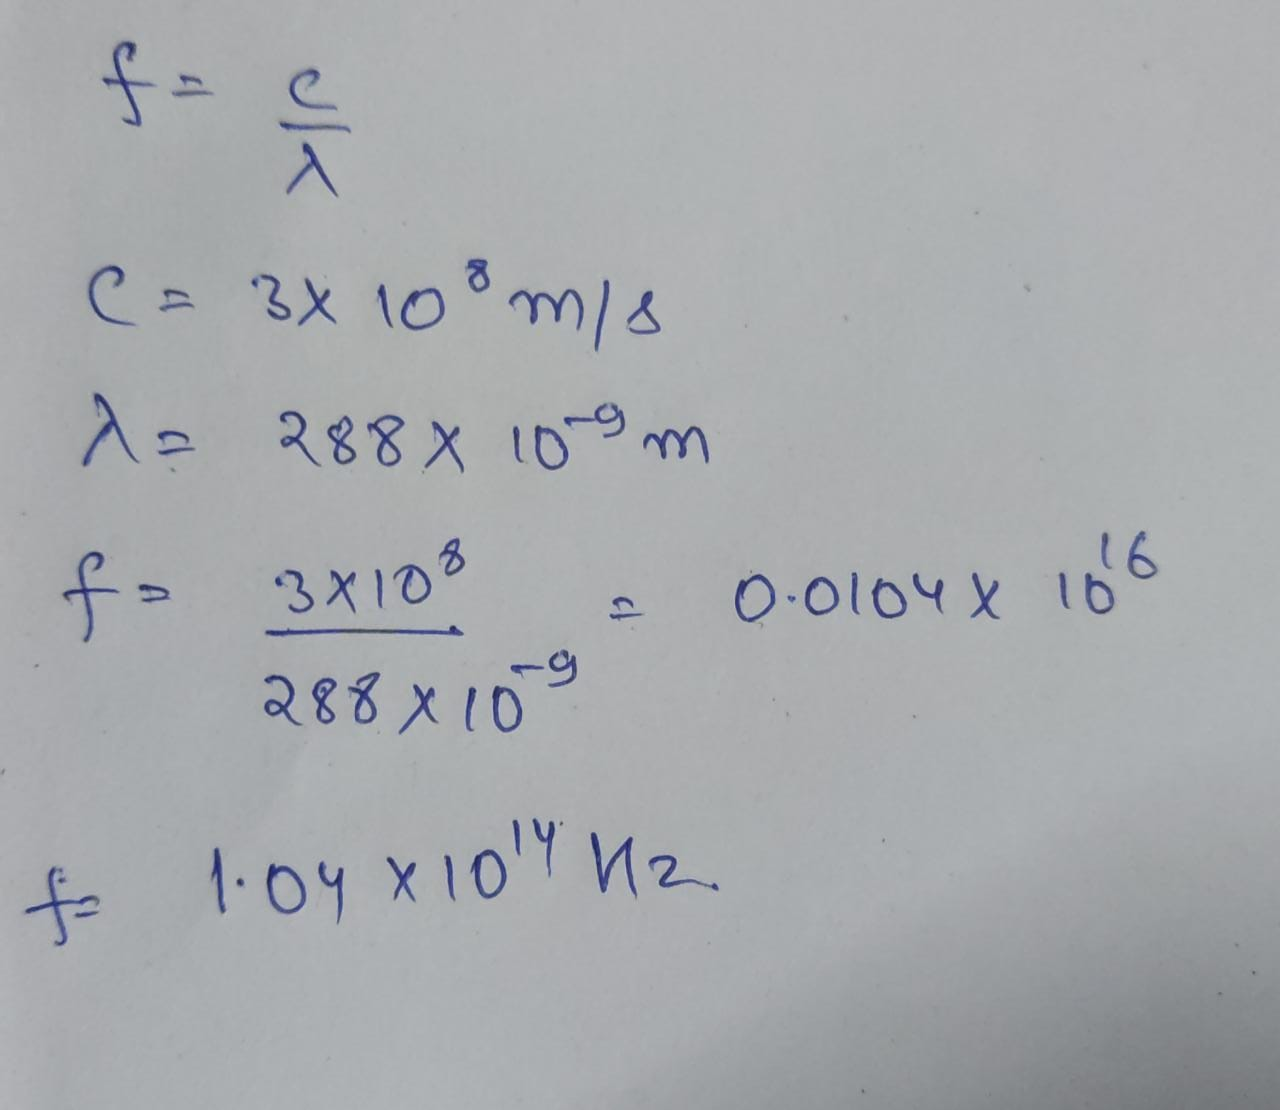 f = c/λ
c = 3 × 10⁸ m/s
λ = 288 × 10⁻⁹ m
f = 3×10⁸ / 288 × 10⁻⁹ = 0.0104 × 10¹⁶
f = 1.04 × 10¹⁴ Hz.